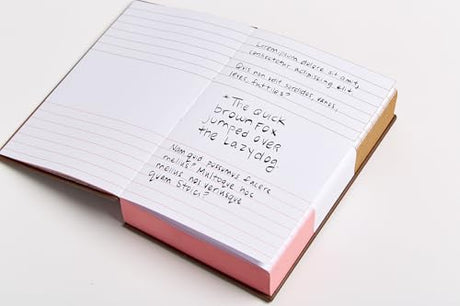 Lorem ipsum dolore sit amit,
consectetur adipiscing elit
Quis non odit sordidos, vanos,
leves, futtiles?
"The Quick
brown Fox
jumped over
the Lazydog
Nam quid possumus facere
melius? Multoque hoc
melius nos veriusque
quam Stoici?